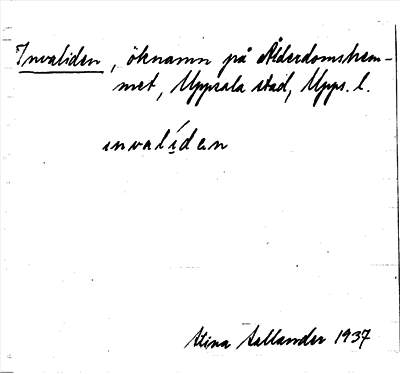 Invaliden, öknamn på Ålderdomshem-
met, Uppsala stad, Upps. l.
invalíden
Stina Sallander 1937